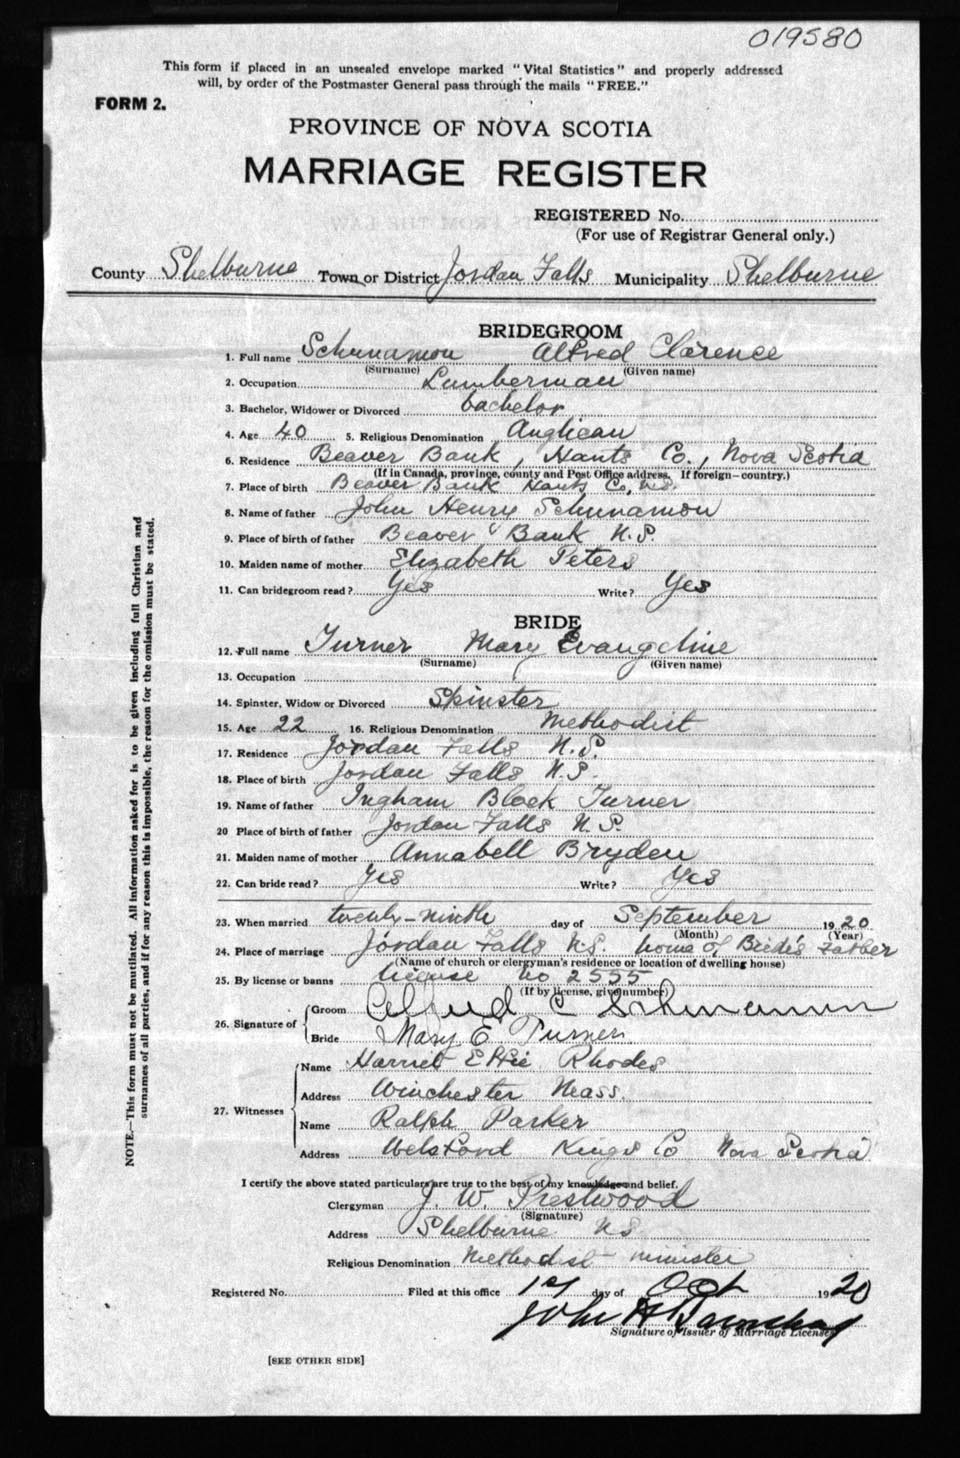 019580
This form if placed in an unsealed envelope marked "Vital Statistics" and properly addressed
will, by order of the Postmaster General pass through the mails "FREE."
FORM 2.
PROVINCE OF NOVA SCOTIA
MARRIAGE REGISTER
REGISTERED No.
(For use of Registrar General only.)
County Shelburne Town or District Jordan Falls Municipality Shelburne
BRIDEGROOM
1. Full name Schunamon Alfred Clarence
(Surname) (Given name)
2. Occupation Lumberman
3. Bachelor, Widower or Divorced bachelor
4. Age 40 5. Religious Denomination Anglican
6. Residence Beaver Bank, Hants Co., Nova Scotia
(If in Canada, province, county and Post Office address. If foreign—country.)
7. Place of birth Beaver Bank Hants Co, N.S.
8. Name of father John Henry Schunamon
9. Place of birth of father Beaver Bank N.S.
10. Maiden name of mother Elizabeth Peters
11. Can bridegroom read? Yes Write? Yes
BRIDE
12. Full name Turner Mary Evangeline
(Surname) (Given name)
13. Occupation
14. Spinster, Widow or Divorced Spinster
15. Age 22 16. Religious Denomination Methodist
17. Residence Jordan Falls N.S.
18. Place of birth Jordan Falls N.S.
19. Name of father Ingham Block Turner
20 Place of birth of father Jordan Falls N.S.
21. Maiden name of mother Annabell Bryden
22. Can bride read? Yes Write? Yes
23. When married twenty-ninth day of September 1920
(Month) (Year)
24. Place of marriage Jordan Falls N.S. home of Bride's Father
(Name of church or clergyman's residence or location of dwelling house)
25. By license or banns license no 2555
(If by license, give number)
26. Signature of Groom Alfred C Schunamon
Bride Mary E Turner
27. Witnesses Name Harriet Effie Rhodes
Address Winchester Mass.
Name Ralph Parker
Address Welsford Kings Co Nova Scotia
I certify the above stated particulars are true to the best of my knowledge and belief.
Clergyman J. W. Prestwood
(Signature)
Address Shelburne NS
Religious Denomination Methodist minister
Registered No. Filed at this office 1st day of Oct 1920
John H
Signature of Issuer of Marriage Licenses
[SEE OTHER SIDE]
NOTE.—This form must not be mutilated. All information asked for is to be given including full Christian and
surnames of all parties, and if for any reason this is impossible, the reason for the omission must be stated.